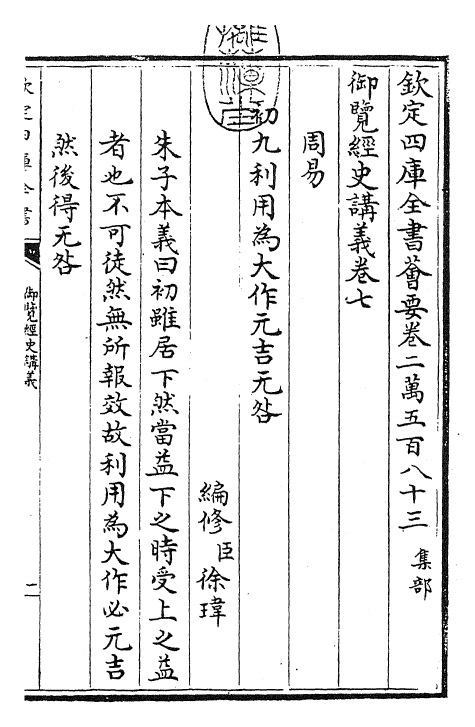 欽定四庫全書薈要卷二萬五百八十三 集部
御覽經史講義卷七
周易
初九利用為大作元吉无咎
編修臣徐瑋
朱子本義曰初雖居下然當益下之時受上之益
者也不可徒然無所報效故利用為大作必元吉
然後得无咎
欽定四庫全書
御覽經史講義